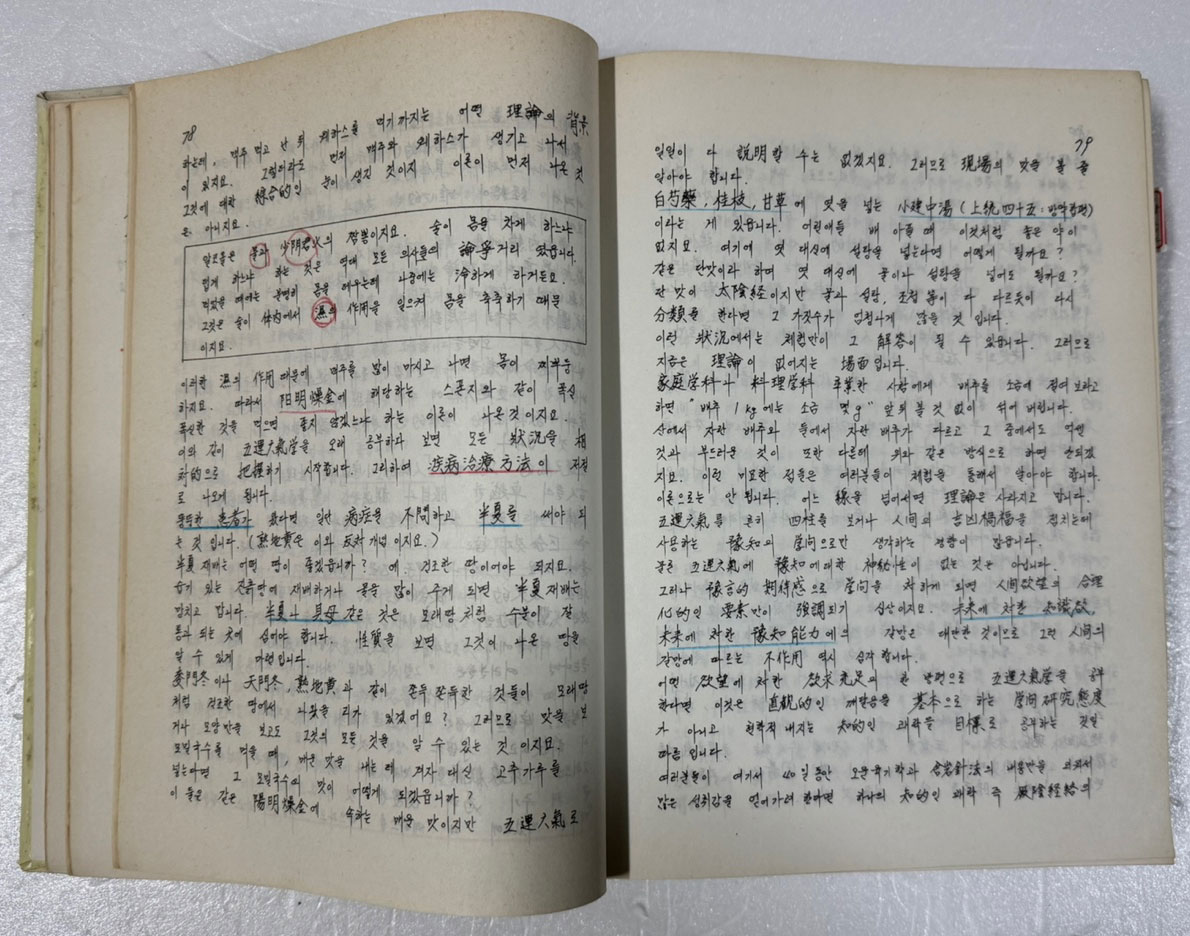 78
하는데, 맥주 먹고 난 뒤 훼하스를 먹기까지는 어떤 理論의 背景
이 있지요. 그렇더라도 먼저 맥주와 훼하스가 생기고 나서
그것에 대한 綜合的인 눈이 생긴 것이지 이론이 먼저 나온 것
은 아니지요.
알코올은 물과 少阴君火의 짬뽕이지요. 술이 몸을 차게 하느냐
덥게 하느냐 하는 것은 역대 모든 의사들의 論爭거리 였읍니다.
먹었을 때에는 분명히 몸을 데우는데 나중에는 冷하게 하거든요.
그것은 술이 体内에서 濕의 作用을 일으켜 몸을 축축하기 때문
이지요.
이러한 濕의 作用 때문에 맥주를 많이 마시고 나면 몸이 찌뿌둥
하지요. 따라서 阳明燥金에 해당하는 스폰지와 같이 폭신
폭신한 것을 먹으면 좋지 않겠느냐 하는 이론이 나온것이지요.
이와 같이 五運六氣学을 오래 공부하다 보면 모든 狀況을 相
対的으로 把握하기 시작합니다. 그리하여 疾病治療方法이 저절
로 나오게 됩니다.
뚱뚱한 患者가 왔다면 일단 病症을 不問하고 半夏를 써야 되
는 것 입니다. (熟地黄은 이와 反対개념 이지요.)
半夏재배는 어떤 땅이 좋겠읍니까? 예 건조한 땅이어야 되지요.
습기 있는 진흙땅에 재배하거나 물을 많이 주게 되면 半夏재배는
망치고 맙니다. 半夏나 貝母같은 것은 모래땅처럼 수분이 잘
통과 되는 곳에 심어야 합니다. 性質을 보면 그것이 나온 땅을
알 수 있게 마련입니다.
麥門冬이나 天門冬, 熟地黄과 같이 쫀득쫀득한 것들이 모래땅
처럼 건조한 땅에서 나왔을 리가 있겠어요? 그러므로 맛을 보
거나 모양만을 보고도 그것의 모든 것을 알 수 있는 것 이지요.
모밀국수를 먹을 때, 매운 맛을 내는데 겨자 대신 고추가루를
넣는다면 그 모밀국수의 맛이 어떻게 되겠읍니까?
이 둘은 같은 陽明燥金에 속하는 매운 맛이지만 五運六氣로
79
일일이 다 說明할 수는 없겠지요. 그러므로 現場의 맛을 볼 줄
알아야 합니다.
白芍藥, 桂枝, 甘草에 엿을 넣는 小建中湯(上統四十五·방약합편)
이라는 게 있읍니다. 어린애들 배 아플 때 이것처럼 좋은 약이
없지요. 여기에 엿 대신에 설탕을 넣는다면 어떻게 될까요?
같은 단맛이라 하여 엿 대신에 꿀이나 설탕을 넣어도 될까요?
단 맛이 太陰経이지만 꿀과 설탕, 조청 등이 다 다르듯이 다시
分類를 한다면 그 가짓수가 엄청나게 많을 것 입니다.
이런 狀況에서는 체험만이 그 解答이 될 수 있읍니다. 그러므로
지금은 理論이 없어지는 場面입니다.
家庭学科나 料理学科 卒業한 사람에게 배추를 소금에 절여보라고
하면 "배추 1kg에는 소금 몇g" 앞뒤 볼 것 없이 섞어 버립니다.
산에서 자란 배추와 들에서 자란 배추가 다르고 그 중에서도 억센
것과 부드러운 것이 또한 다른데 위와 같은 방식으로 하면 안되겠
지요. 이런 미묘한 점들은 여러분들이 체험을 통해서 알아야 합니다.
이론으로는 안 됩니다. 어느 線을 넘어서면 理論은 사라지고 맙니다.
五運六氣를 흔히 四柱를 보거나 人間의 吉凶禍福을 점치는데
사용하는 豫知의 学问으로만 생각하는 경향이 많읍니다.
물론 五運六氣에 豫知에 대한 神秘스런 데가 없는 것은 아닙니다.
그러나 豫言的 期待感으로 学问을 対하게 되면 人间欲望의 合理
化的인 要素만이 強調되기 십상이지요. 未来에 対한 知識欲,
未来에 対한 豫知能力에의 갈망은 대단한 것이므로 그런 人间의
갈망에 따르는 不作用 역시 심각 합니다.
어떤 欲望에 対한 欲求充足의 한 방편으로 五運六氣学을 공부
한다면 이것은 直観的인 깨달음을 基本으로 하는 学问研究態度
가 아니고 현학적 내지는 知的인 과학을 目標로 공부하는 것일
따름 입니다.
여러분들이 여기서 40일 동안 오운육기학과 舍岩針法의 내용만을 외워서
많은 성취감을 얻어가려 한다면 하나의 知的인 과학 즉 厥陰経絡의